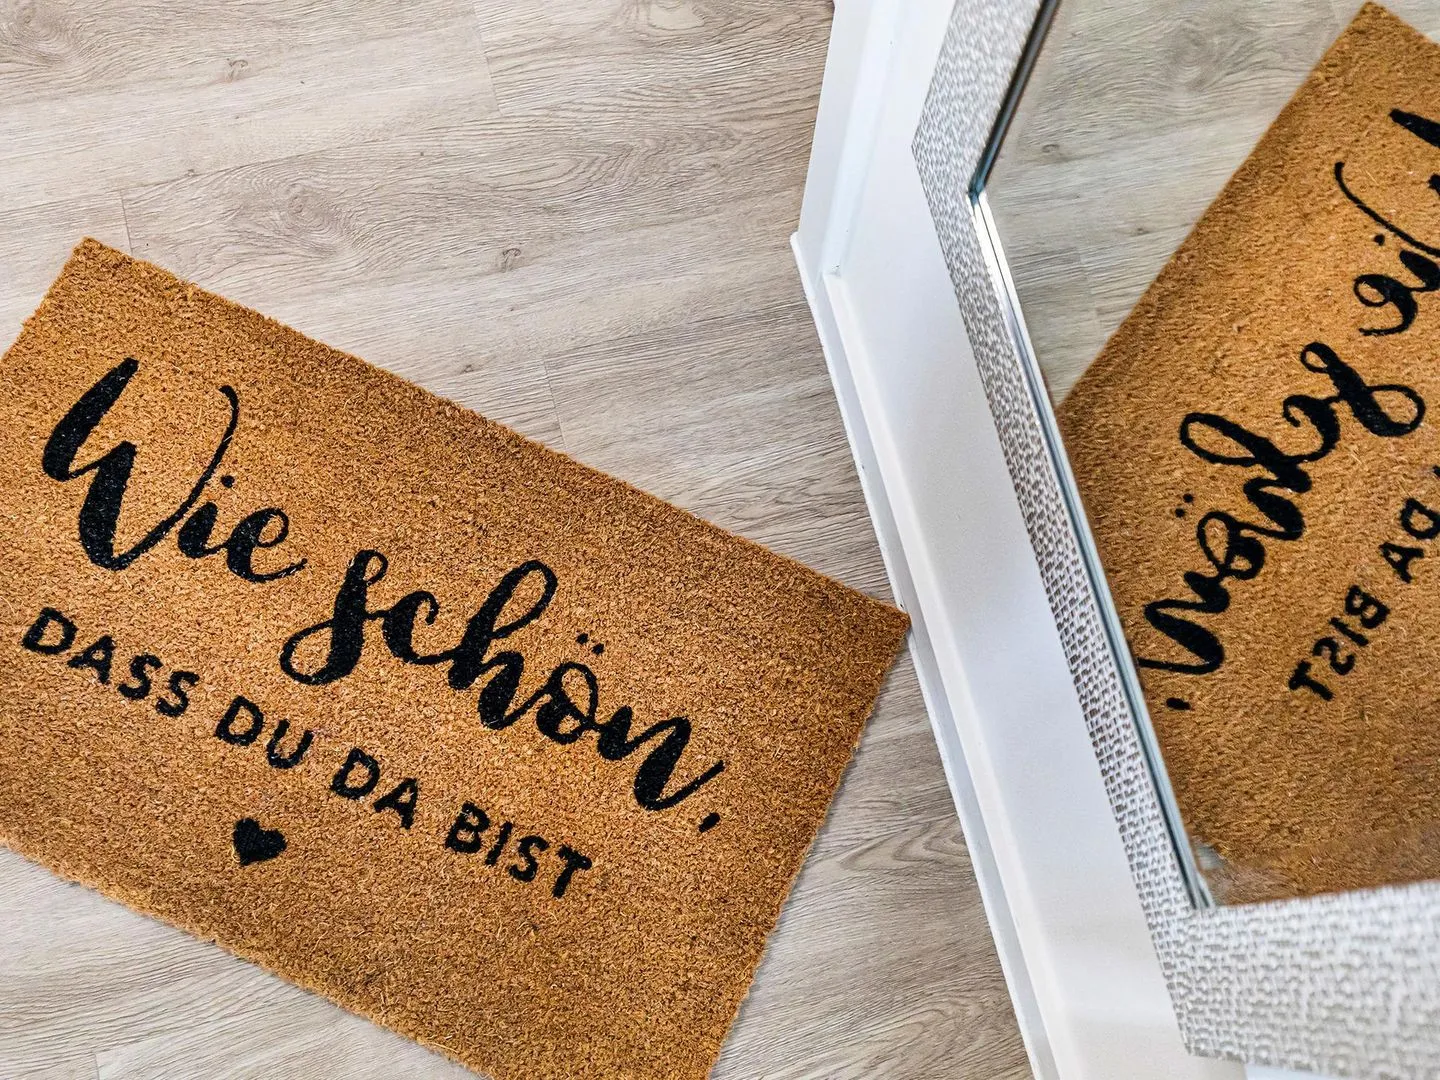 Wie schön,
DASS DU DA BIST